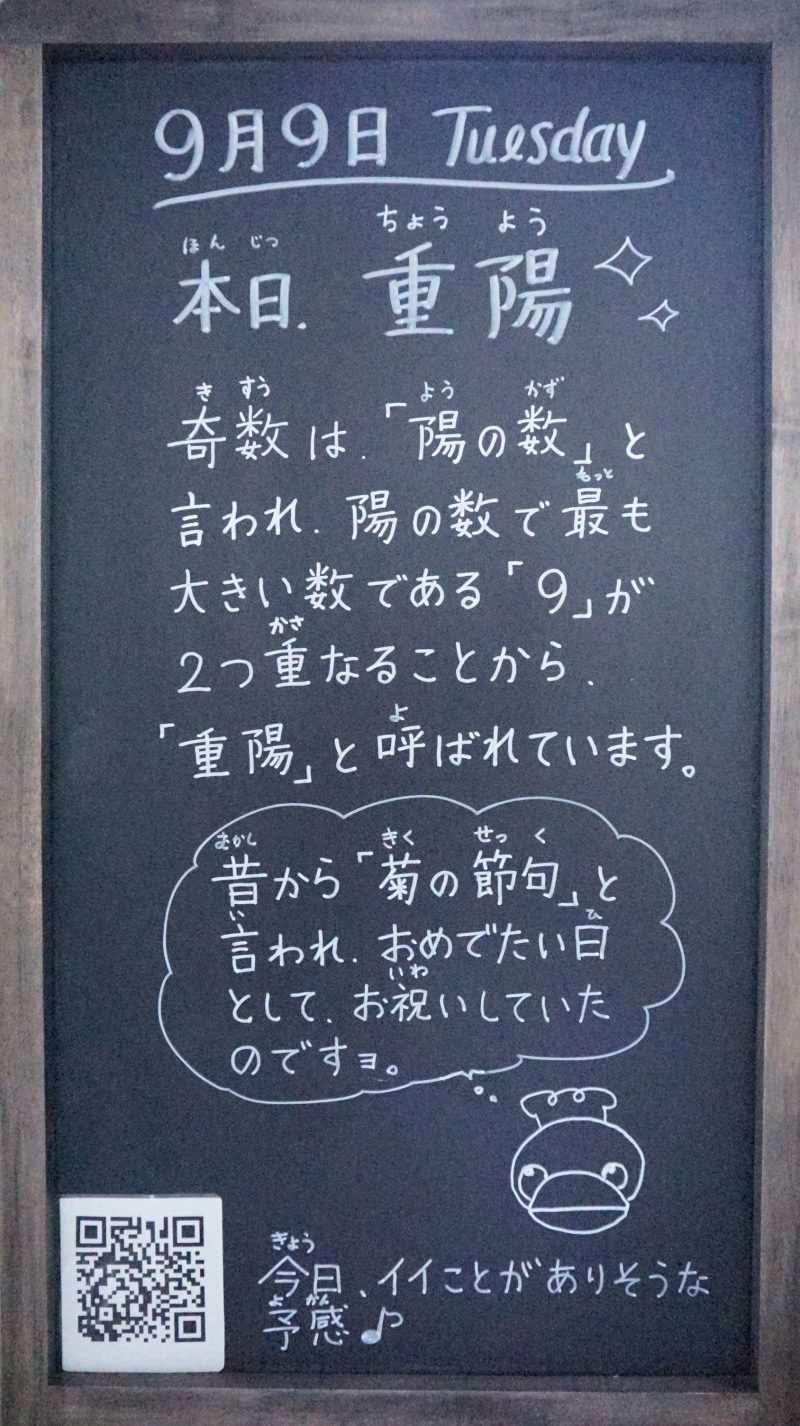 9月9日 Tuesday
ほんじつ ちょうよう
本日、重陽
きすう よう かず
奇数は、「陽の数」と
もっと
言われ、陽の数で最も
大きい数である「9」が
かさ
2つ重なることから、
よ
「重陽」と呼ばれています。
むかし きく せっく
昔から「菊の節句」と
い ひ
言われ、おめでたい日
いわ
として、お祝いしていた
のですョ。
きょう
今日、イイことがありそうな
よ かん
予感♪